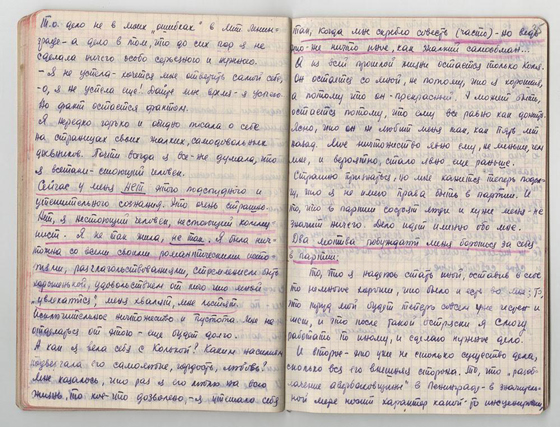 Т.о. дело не в моих "ошибках" в лит. мини-
граде - а дело в том, что до сих пор я не
сделала ничего особо серьезного и нужного.
- Я не успела - хочется мне ответить самой себе,
- о, я не успела еще! Дайте мне время - я успею.
Но факт остается фактом.
Я нередко горько и обидно писала о себе
на страницах своих жалких, самодовольных
дневников. Почти всегда я все-же думала, что
я настоящий человек.
Сейчас у меня нет этого подспудного и
утешительного сознания. Это очень страшно.
Нет, я нестоящий человек, нестоящий комму-
нист. Я не так жила, не так. Я была ничтожна
со всеми своими романтическими
разглагольствованиями, стремлением быть
хорошенькой, удовольствием от того что мной
увлекаются, меня хвалят, мне
ничтожество и пустота. Мне на-
от этого - еще будет долго.
А как я вела себя с Колькой? Каким насилиям
подвергала его самолюбие, гордость, любовь!
Мне казалось, что раз я его люблю на всю
жизнь, то кое-что дозволено, - я утешала себя
тем, когда мне скребло совесть (часто) - но ведь
это-же ничто иное, как жалкий самообман...
И из всей прошлой жизни остается только Коля.
Он остается со мной, не потому, что я хорошая,
а потому что он - прекрасный. А может быть,
остается потому, что ему все равно как
Ясно, что он не любит меня так, как пять лет
назад. Мое ничтожество явно ему, не меньше, чем
мне, и вероятно, стало явно еще раньше.
Страшно признаться, но мне кажется теперь
, что я не имею права быть в партии. И
то, что в партии состоят люди и хуже меня - не
значит ничего. Дело идет именно обо мне.
Два мотива побуждают меня бороться за себя
в партии:
То, что я надеюсь стать иной, оставив в себе
то немногое хорошее, что было и есть во мне; То,
что труд мой будет теперь совсем уже
и что после такой встряски я смогу
работать по иному, и сделаю нужные дела.
И второе - это уже не столько существо дела,
сколько вся его внешняя сторона. То, что "разоб-
лачение авербаховщины" в Ленинграде - в значитель-
ной мере носит характер какой-то инсценировки